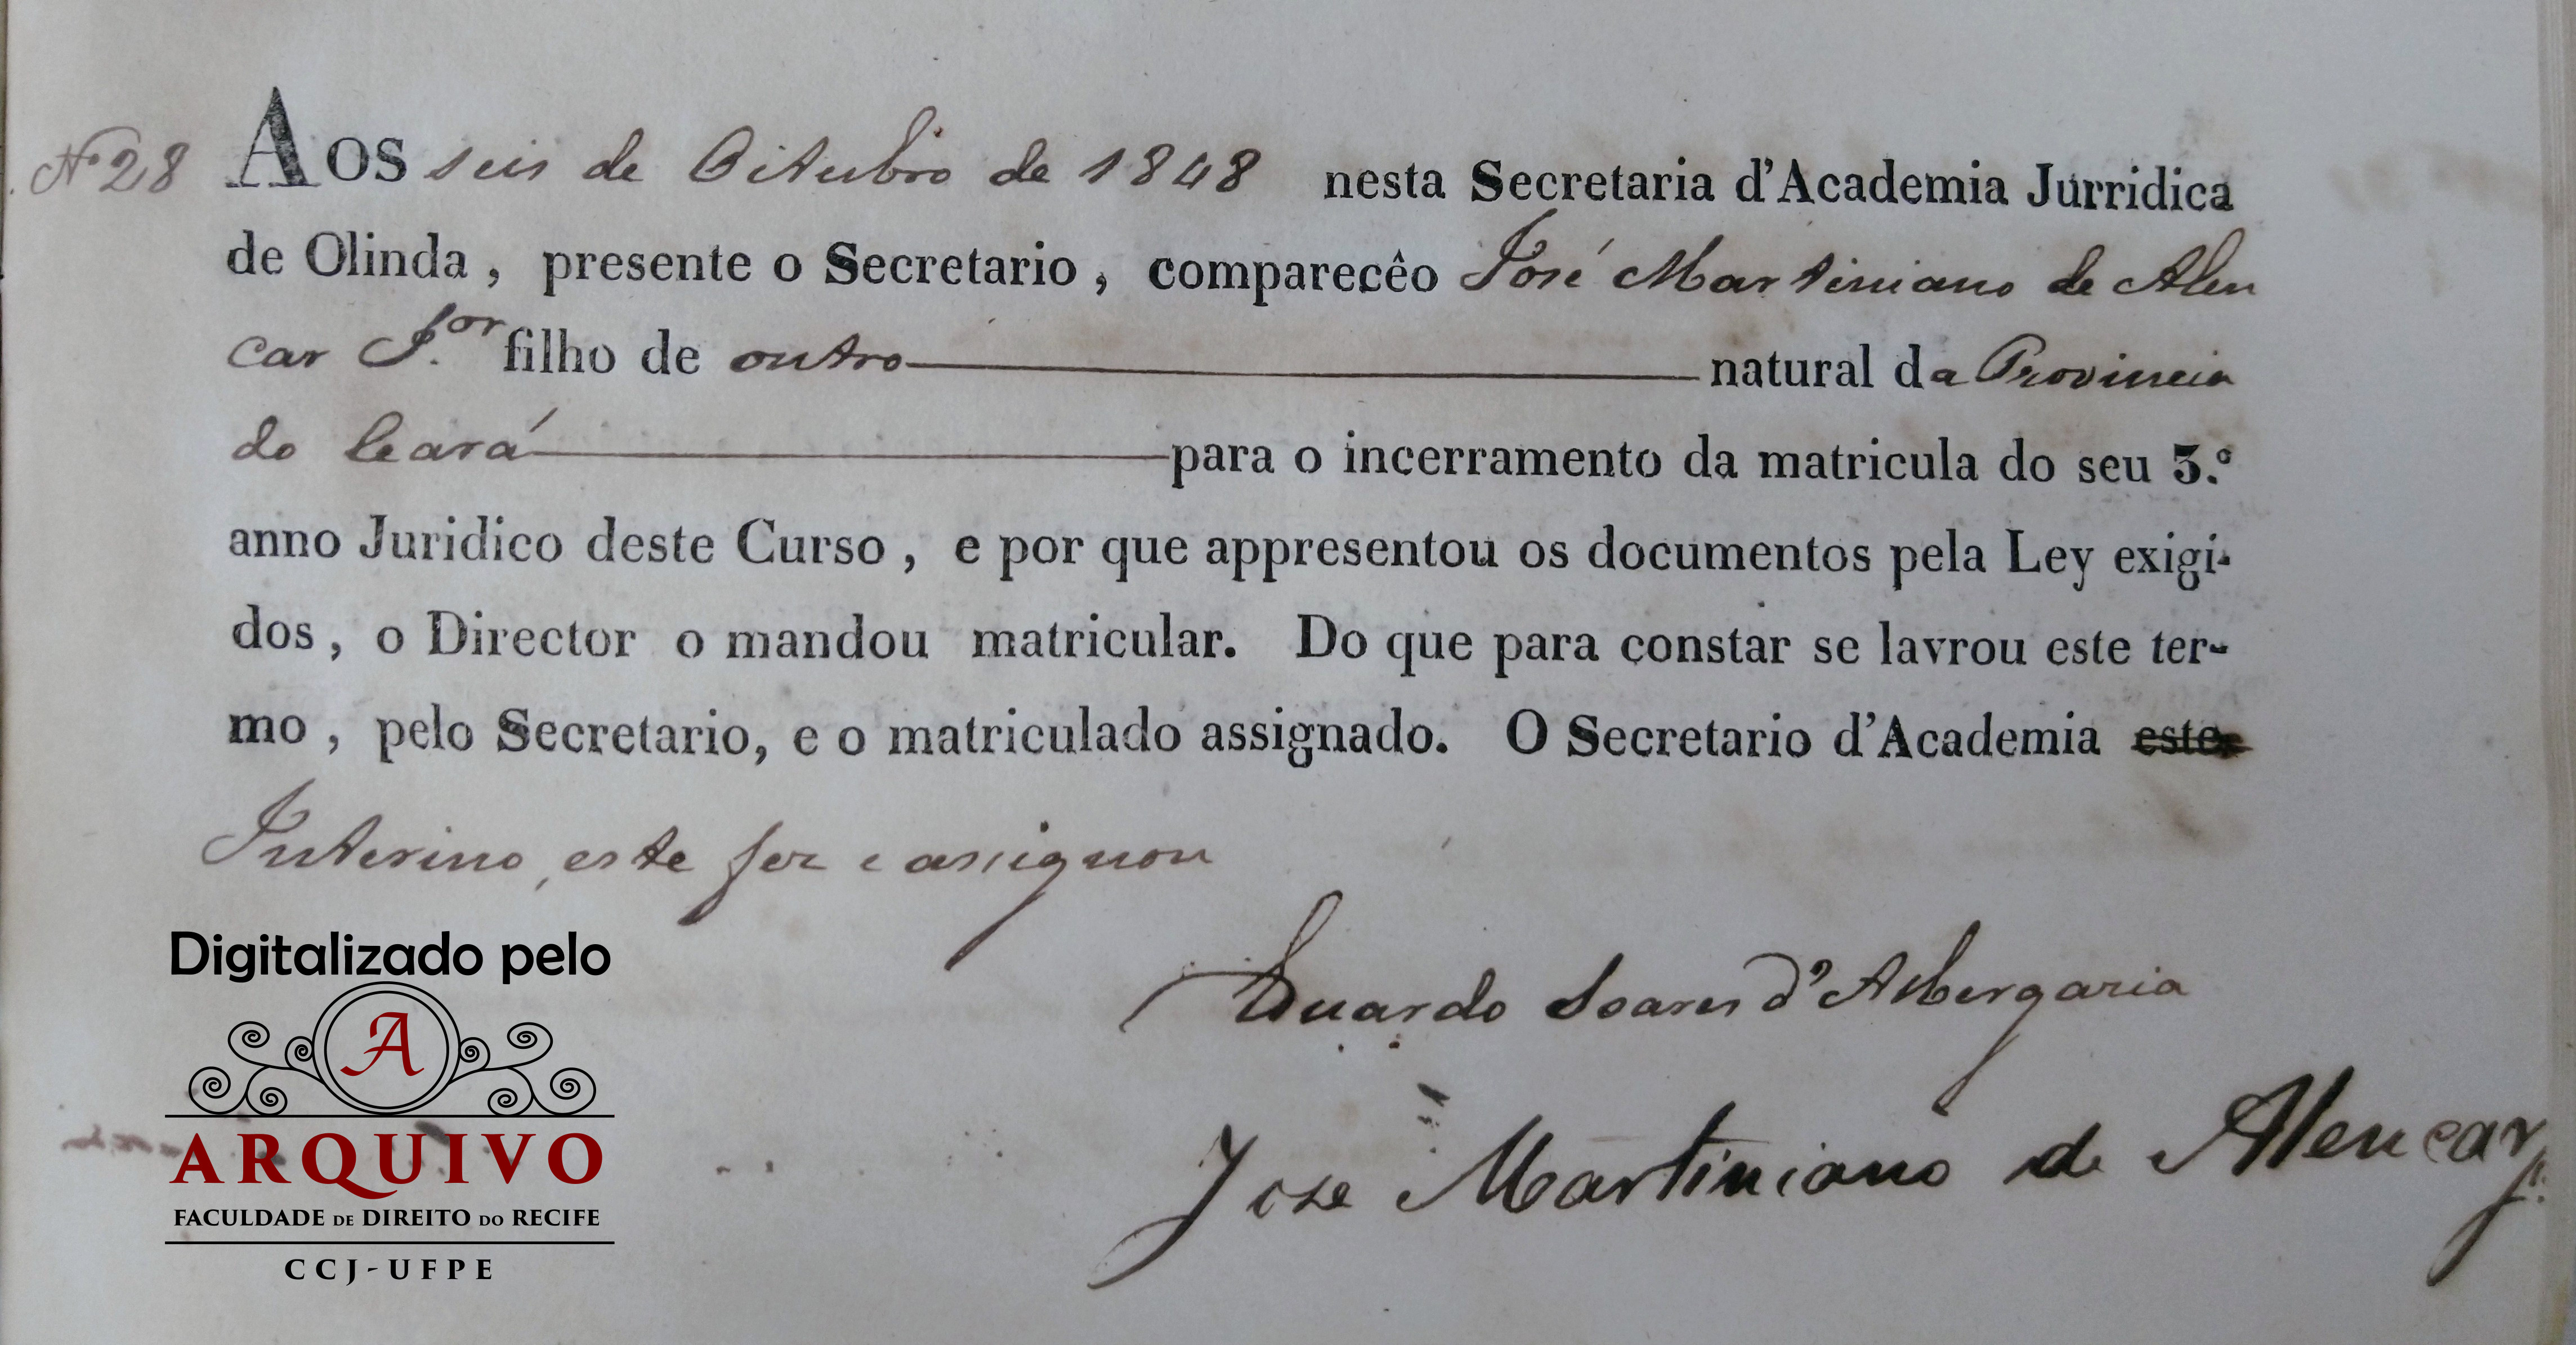 Nº 28 Aos seis de Oitubro de 1848 nesta Secretaria d'Academia Jurridica
de Olinda , presente o Secretario , comparecêo José Martiniano de Alen
car J.or filho de outro natural da Provincia
do Ceará para o incerramento da matricula do seu 3.º
anno Juridico deste Curso , e por que appresentou os documentos pela Ley exigi-
dos , o Director o mandou matricular. Do que para constar se lavrou este ter-
mo , pelo Secretario, e o matriculado assignado. O Secretario d'Academia este
Interino, este fez e assignou
Eduardo Soares d'Albergaria
Jose Martiniano de Alencar Jr.
Digitalizado pelo
A
ARQUIVO
FACULDADE DE DIREITO DO RECIFE
CCJ-UFPE